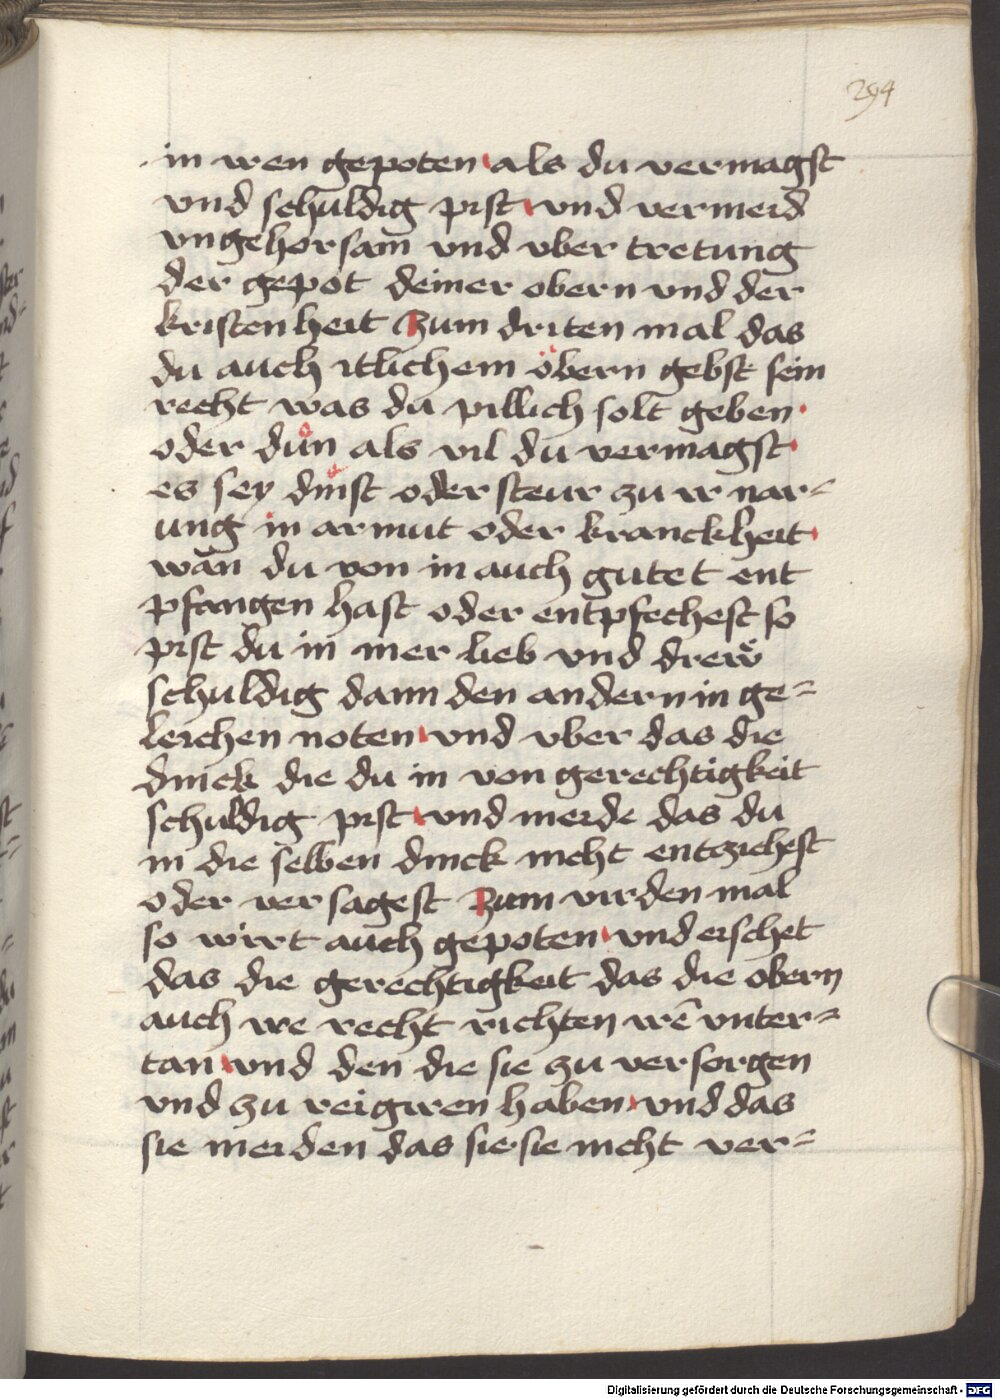 294
in iren gepoten als du vermagst
vnd schuldig pist vnd vermeid
vngehorsam vnd vber tretung
der gepot deiner obern vnd der
kristenheit Zum driten mal das
du auch itlichem öbern gebst sein
recht was du pillich solt geben
oder dun als vil du vermagst
es sey dinst oder steur zu ir nar=
ung in armut oder kranckheit
wan du von in auch gutet ent
pfangen hast oder entpfechest so
pist du in mer lieb vnd drew
schuldig dann den andern in ge=
leichen noten vnd vber das die
dinck die du in von gerechtigkeit
schuldig pist vnd meide das du
in die selben dinck nicht entziehest
oder ver sagest Zum virden mal
so wirt auch gepoten vnd eischet
das die gerechtigkeit das die obern
auch ire recht richten irē vnter=
tan vnd den die sie zu versorgen
vnd zu reigiren haben vnd das
sie meiden das sie sie nicht ver=
Digitalisierung gefördert durch die Deutsche Forschungsgemeinschaft - DFG